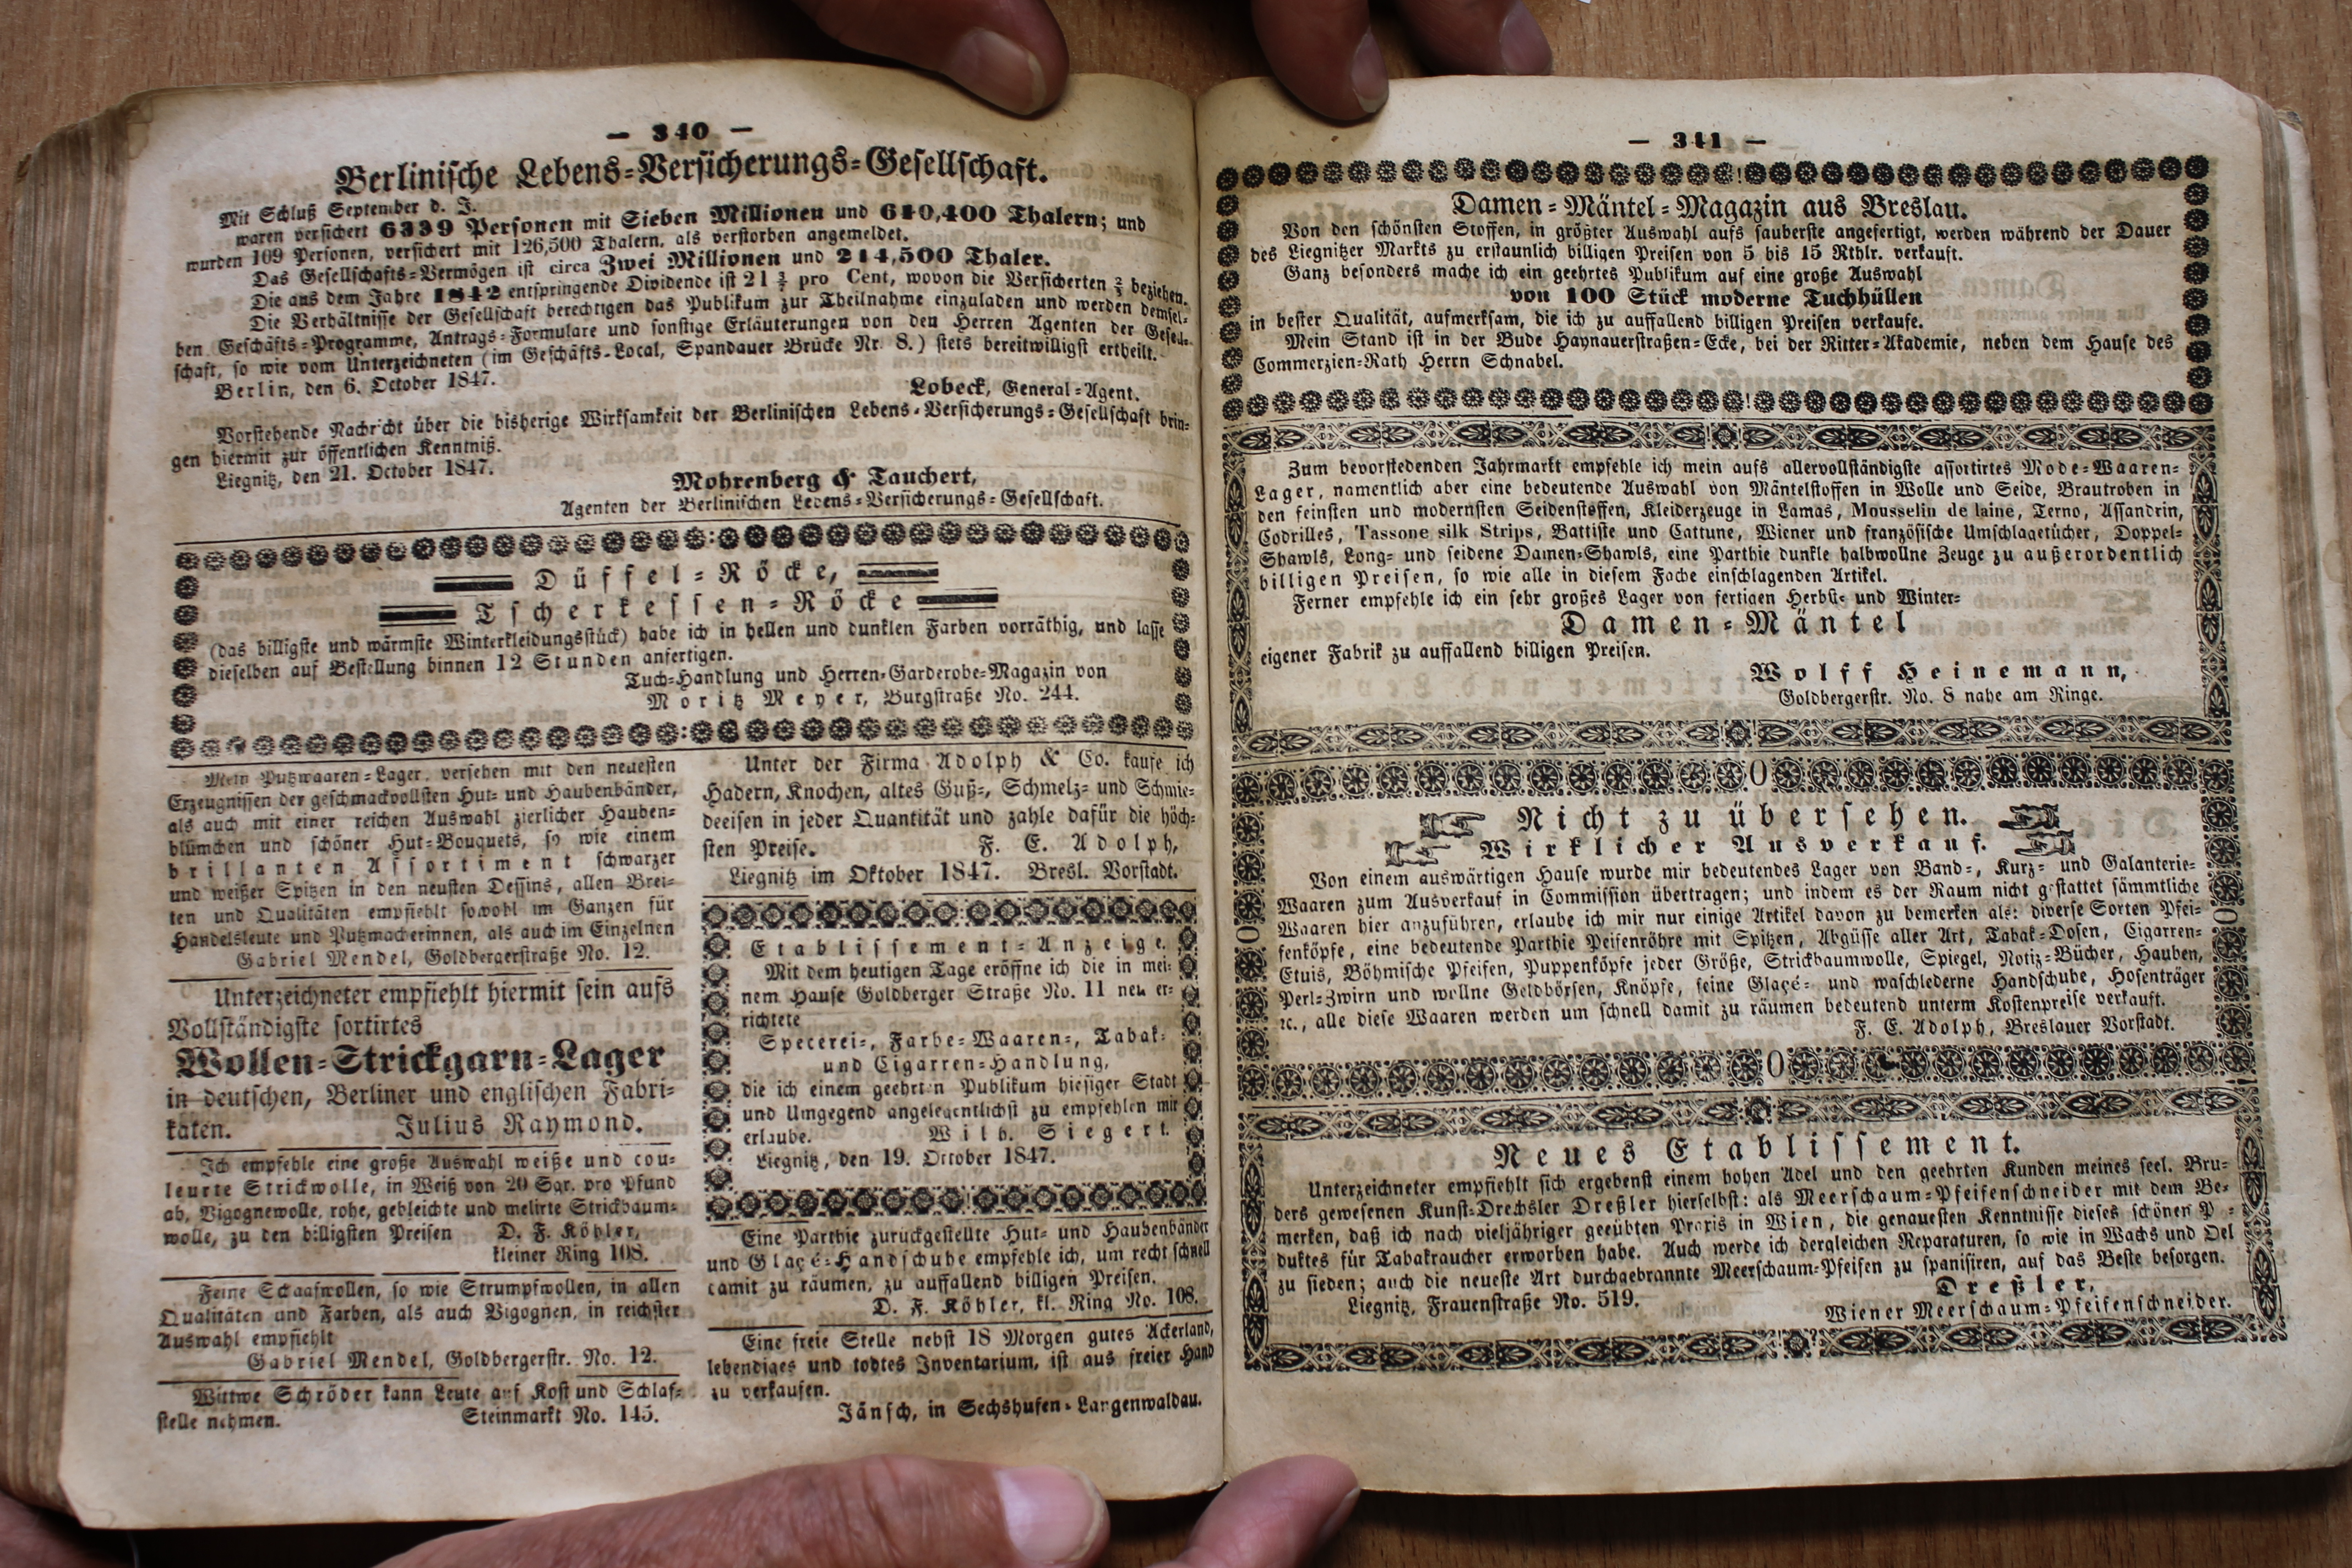 — 340 —
Berlinische Lebens=Versicherungs=Gesellschaft.
Mit Schluß September d. J.
waren versichert 6339 Personen mit Sieben Millionen und 610,400 Thalern; und
wurden 109 Personen, versichert mit 126,500 Thalern, als verstorben angemeldet.
Das Gesellschafts=Vermögen ist circa Zwei Millionen und 214,500 Thaler.
Die aus dem Jahre 1842 entspringende Dividende ist 21 pro Cent, wovon die Versicherten ⅔ beziehen.
Die Verhältnisse der Gesellschaft berechtigen das Publikum zur Theilnahme einzuladen und werden demsel=
ben Geschäfts=Programme, Antrags=Formulare und sonstige Erläuterungen von den Herren Agenten der Gesell=
schaft, so wie vom Unterzeichneten (im Geschäfts=Local, Spandauer Brücke Nr. 8.) stets bereitwilligst ertheilt.
Berlin, den 6. October 1847.
Lobeck, General=Agent.
Vorstehende Nachricht über die bisherige Wirksamkeit der Berlinischen Lebens=Versicherungs=Gesellschaft brin=
gen hiermit zur öffentlichen Kenntniß.
Liegnitz, den 21. October 1847.
Mohrenberg & Tauchert,
Agenten der Berlinischen Lebens=Versicherungs=Gesellschaft.
Düffel=Röcke,
Tscherkessen=Röcke
(das billigste und wärmste Winterkleidungsstück) habe ich in hellen und dunklen Farben vorräthig, und lasse
dieselben auf Bestellung binnen 12 Stunden anfertigen.
Tuch=Handlung und Herren=Garderobe=Magazin von
Moritz Meyer, Burgstraße No. 244.
Mein Putzwaaren=Lager, versehen mit den neuesten
Erzeugnissen der geschmackvollsten Hut= und Haubenbänder,
als auch mit einer reichen Auswahl zierlicher Hauben=
blümchen und schöner Hut=Bouquets, so wie einem
brillanten Assortiment schwarzer
und weißer Spitzen in den neusten Dessins, allen Brei=
ten und Qualitäten empfiehlt sowohl im Ganzen für
Handelsleute und Putzmacherinnen, als auch im Einzelnen
Gabriel Mendel, Goldbergerstraße No. 12.
Unterzeichneter empfiehlt hiermit sein aufs
Vollständigste sortirtes
Wollen=Strickgarn=Lager
in deutschen, Berliner und englischen Fabri=
katen. Julius Raymond.
Ich empfehle eine große Auswahl weiße und cou=
leurte Strickwolle, in Weiß von 20 Sgr. pro Pfund
ab, Vigognewolle, rohe, gebleichte und melirte Strickbaum=
wolle, zu den billigsten Preisen D. F. Köhler,
kleiner Ring 108.
Feine Schaafwollen, so wie Strumpfwollen, in allen
Qualitäten und Farben, als auch Vigognen, in reichster
Auswahl empfiehlt
Gabriel Mendel, Goldbergerstr. No. 12.
Wittwe Schröder kann Leute auf Kost und Schlaf=
stelle nehmen. Steinmarkt No. 145.
Unter der Firma Adolph & Co. kaufe ich
Hadern, Knochen, altes Guß=, Schmelz= und Schmie=
deeisen in jeder Quantität und zahle dafür die höch=
sten Preise. F. E. Adolph,
Liegnitz im Oktober 1847. Bresl. Vorstadt.
Etablissement=Anzeige.
Mit dem heutigen Tage eröffne ich die in mei=
nem Hause Goldberger Straße No. 11 neu er=
richtete
Specerei=, Farbe=Waaren=, Tabak=
und Cigarren=Handlung,
die ich einem geehrten Publikum hiesiger Stadt
und Umgegend angelegentlichst zu empfehlen mir
erlaube. Wilh. Siegert.
Liegnitz, den 19. October 1847.
Eine Parthie zurückgestellte Hut= und Haubenbänder
und Glaçé=Handschuhe empfehle ich, um recht schnell
damit zu räumen, zu auffallend billigen Preisen.
D. F. Köhler, kl. Ring No. 108.
Eine freie Stelle nebst 18 Morgen gutes Ackerland,
lebendiges und todtes Inventarium, ist aus freier Hand
zu verkaufen.
Jänsch, in Sechshufen=Langenwaldau.
— 341 —
Damen=Mäntel=Magazin aus Breslau.
Von den schönsten Stoffen, in größter Auswahl aufs sauberste angefertigt, werden während der Dauer
des Liegnitzer Markts zu erstaunlich billigen Preisen von 5 bis 15 Rthlr. verkauft.
Ganz besonders mache ich ein geehrtes Publikum auf eine große Auswahl
von 100 Stück moderne Tuchhüllen
in bester Qualität, aufmerksam, die ich zu auffallend billigen Preisen verkaufe.
Mein Stand ist in der Bude Haynauerstraßen=Ecke, bei der Ritter=Akademie, neben dem Hause des
Commerzien=Rath Herrn Schnabel.
Zum bevorstehenden Jahrmarkt empfehle ich mein aufs allervollständigste assortirtes Mode=Waaren=
Lager, namentlich aber eine bedeutende Auswahl von Mäntelstoffen in Wolle und Seide, Brautroben in
den feinsten und modernsten Seidenstoffen, Kleiderzeuge in Lamas, Mousselin de laine, Terno, Assandrin,
Codrilles, Tassone silk Strips, Battiste und Cattune, Wiener und französische Umschlagetücher, Doppel=
Shawls, Long= und seidene Damen=Shawls, eine Parthie dunkle halbwollne Zeuge zu außerordentlich
billigen Preisen, so wie alle in diesem Fache einschlagenden Artikel.
Ferner empfehle ich ein sehr großes Lager von fertigen Herbst= und Winter=
Damen=Mäntel
eigener Fabrik zu auffallend billigen Preisen.
Wolff Heinemann,
Goldbergerstr. No. 8 nahe am Ringe.
Nicht zu übersehen.
Wirklicher Ausverkauf.
Von einem auswärtigen Hause wurde mir bedeutendes Lager von Band=, Kurz= und Galanterie=
Waaren zum Ausverkauf in Commission übertragen; und indem es der Raum nicht gestattet sämmtliche
Waaren hier anzuführen, erlaube ich mir nur einige Artikel davon zu bemerken als: diverse Sorten Pfei=
fenköpfe, eine bedeutende Parthie Peifenröhre mit Spitzen, Abgüsse aller Art, Tabak=Dosen, Cigarren=
Etuis, Böhmische Pfeifen, Puppenköpfe jeder Größe, Strickbaumwolle, Spiegel, Notiz=Bücher, Hauben,
Perl=Zwirn und wollne Geldbörsen, Knöpfe, feine Glaçé= und waschlederne Handschuhe, Hosenträger
ꝛc., alle diese Waaren werden um schnell damit zu räumen bedeutend unterm Kostenpreise verkauft.
F. E. Adolph, Breslauer Vorstadt.
Neues Etablissement.
Unterzeichneter empfiehlt sich ergebenst einem hohen Adel und den geehrten Kunden meines seel. Bru=
ders gewesenen Kunst=Drechsler Dreßler hierselbst: als Meerschaum=Pfeifenschneider mit dem Be=
merken, daß ich nach vieljähriger geeübten Praxis in Wien, die genauesten Kenntnisse dieses schönen P=
duktes für Tabakraucher erworben habe. Auch werde ich dergleichen Reparaturen, so wie in Wachs und Oel
zu sieden; auch die neueste Art durchgebrannte Meerschaum=Pfeifen zu spanisiren, auf das Beste besorgen.
Dreßler,
Liegnitz, Frauenstraße No. 519.
Wiener Meerschaum=Pfeifenschneider.